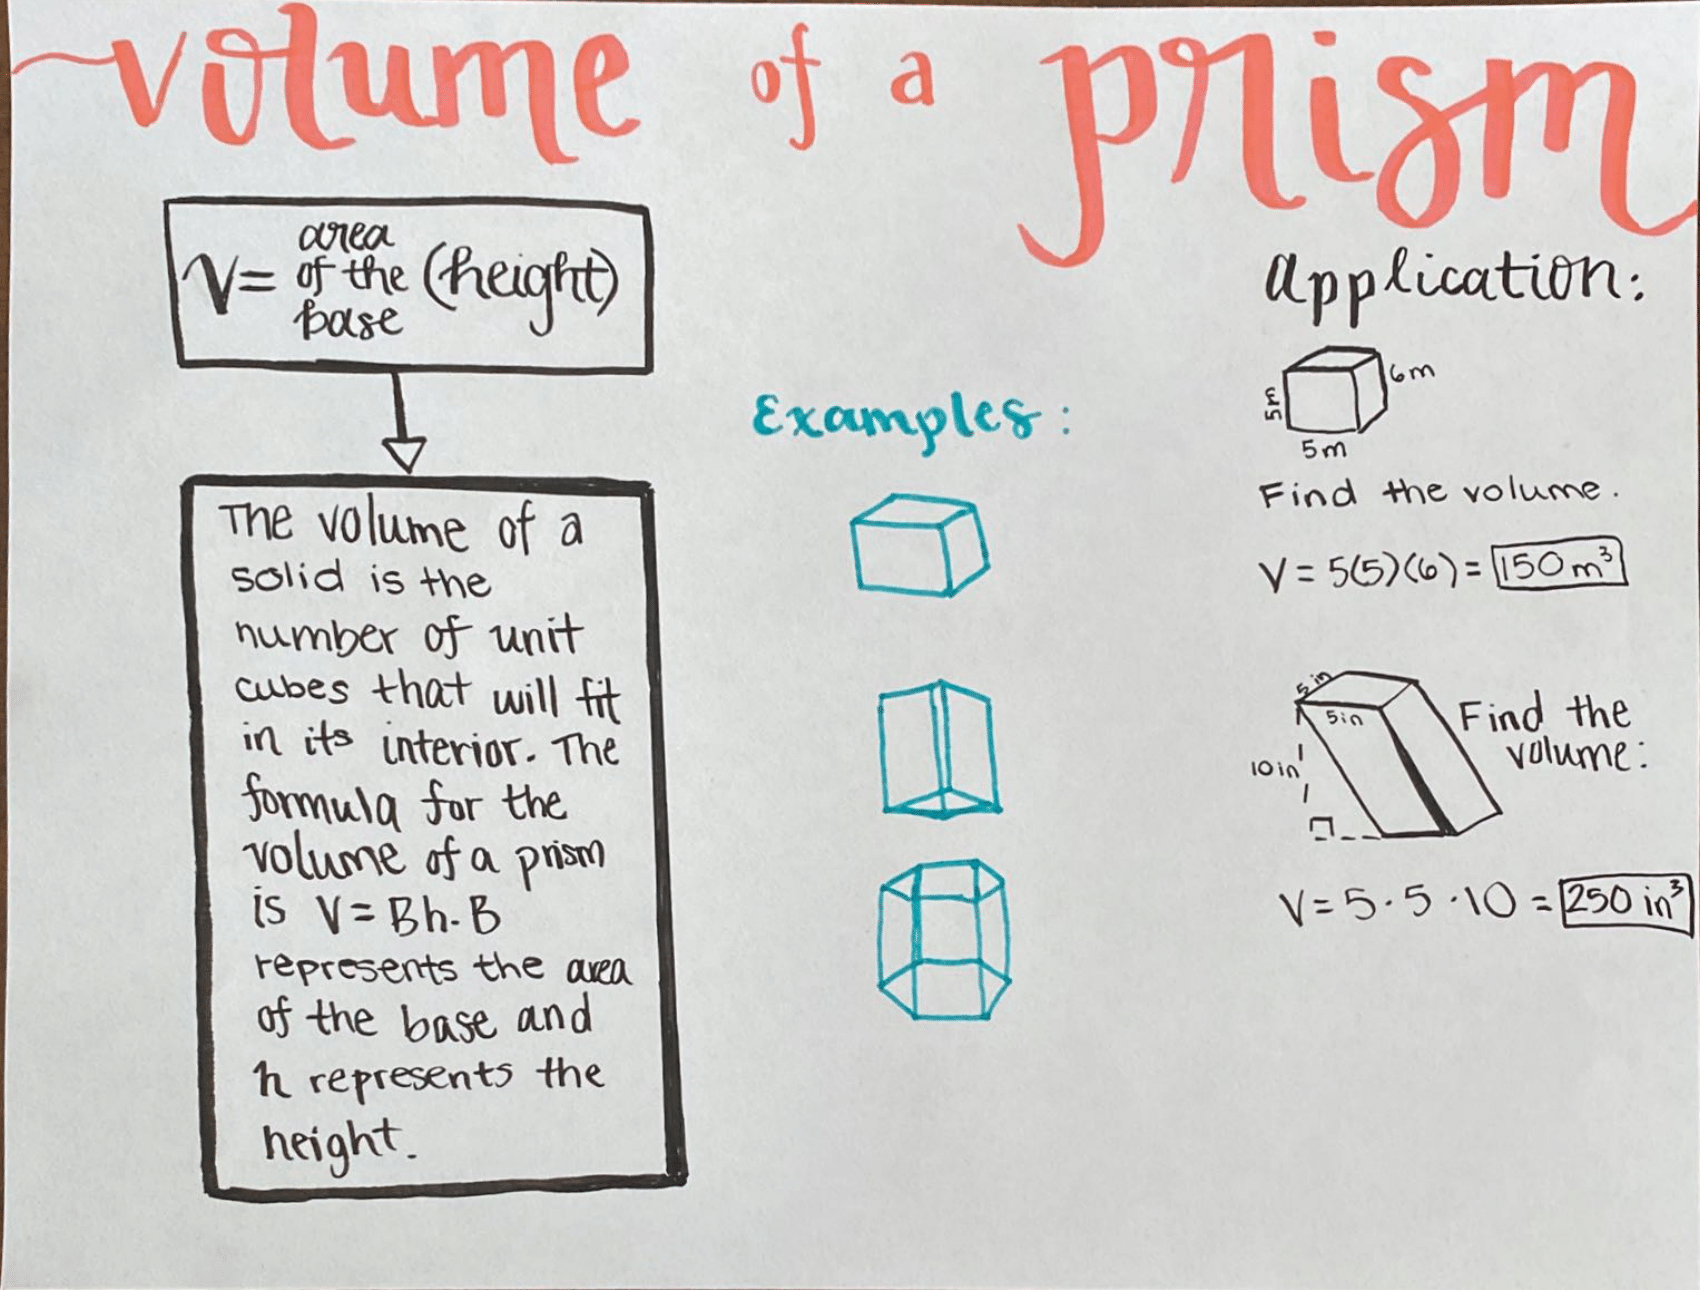 volume of a prism
V= area of the base (height)
The volume of a
solid is the
number of unit
cubes that will fit
in its interior. The
formula for the
volume of a prism
is V=Bh. B
represents the area
of the base and
h represents the
height.
Examples:
application:
6m
5m
5m
Find the volume.
V = 5(5)(6) = 150 m³
5 in
5in
10in
Find the
volume:
V = 5 · 5 · 10 = 250 in³